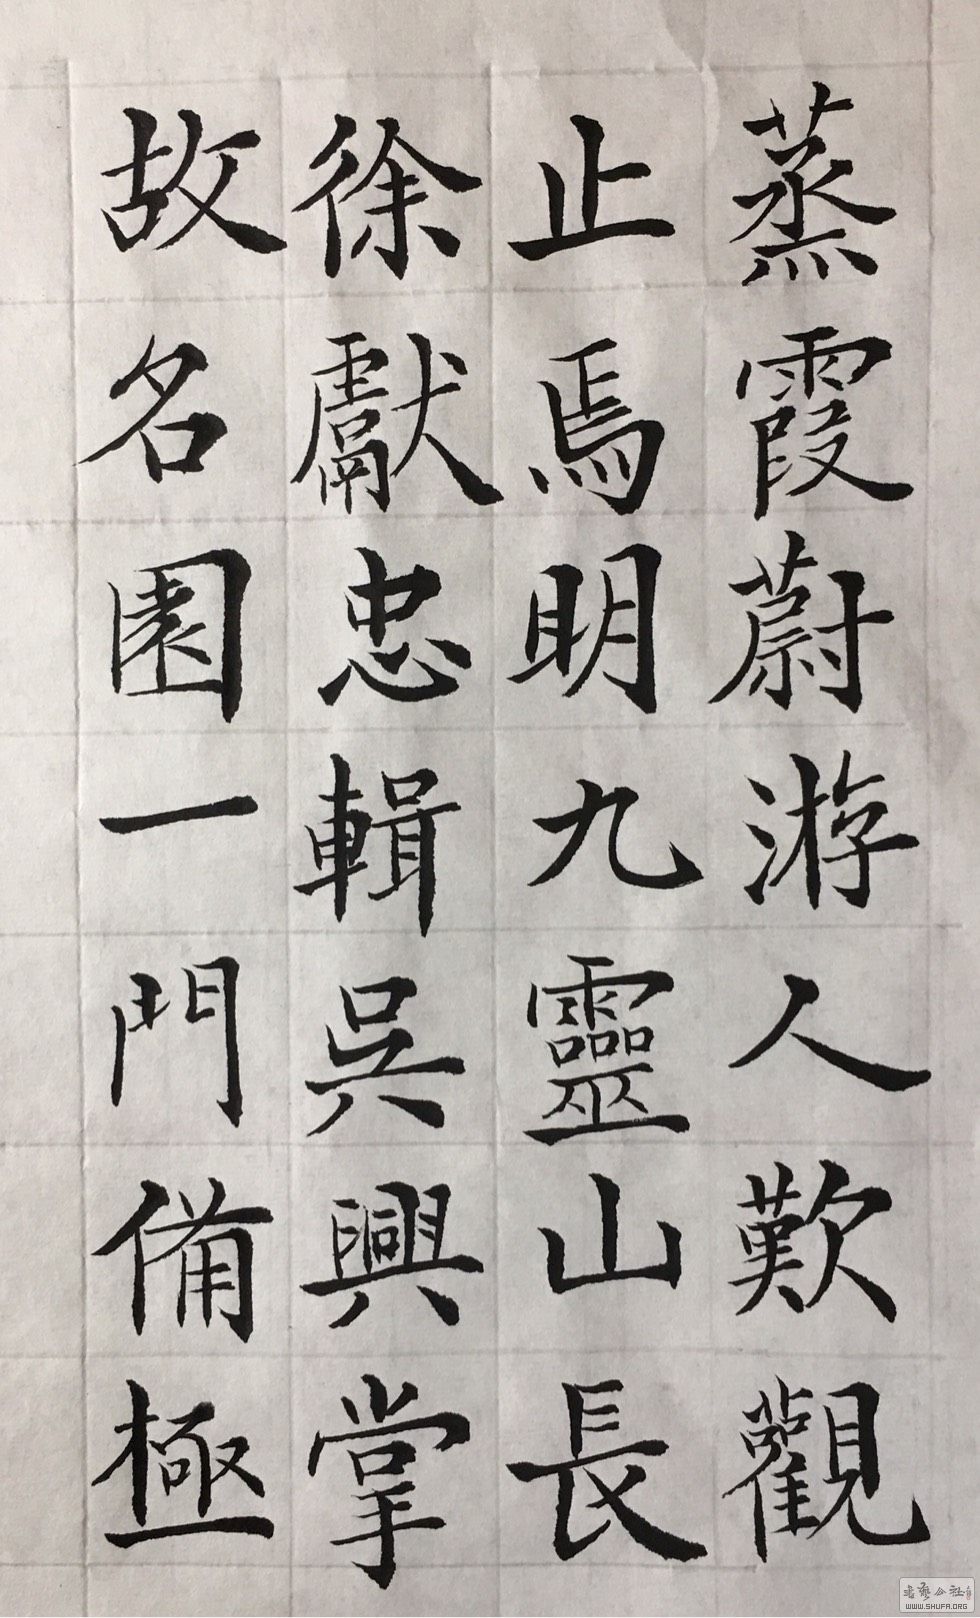 蒸霞蔚游人歎觀
止焉明九靈山長
徐獻忠輯吳興掌
故名園一門備極
書藝公社
WWW.SHUFA.ORG